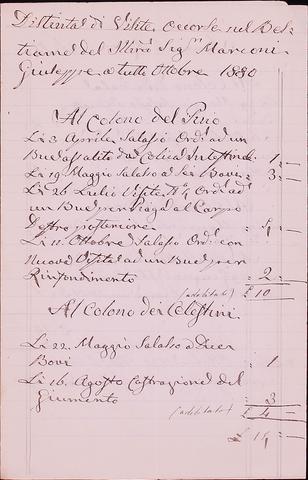 Distinta di Visite occorse nel Bes=
tiame del Illmo Sigr Marconi
Giuseppe a tutto Ottobre 1880
Al Colono del Pino
Li 3 Aprile Salasso Ord. ad un
Bue assalito da Colica Intestinale 1
Li 19 Maggio Salasso a Sei Bovi = 3
Li 26 Luglio Visite N. 4 Ord. ad
un Bue per Piaga al Carpo
Destro posteriore = 4
Li 11 Ottobre Salasso Ord. con
Nuove Visite ad un Bue per
Rinfondimento = 2
£ 10
Al Colono dei Celestini
Li 22 Maggio Salasso a
Bovi = 1
Li 16 Agosto Castrazione del
Giumento = 3
£ 4
£ 14